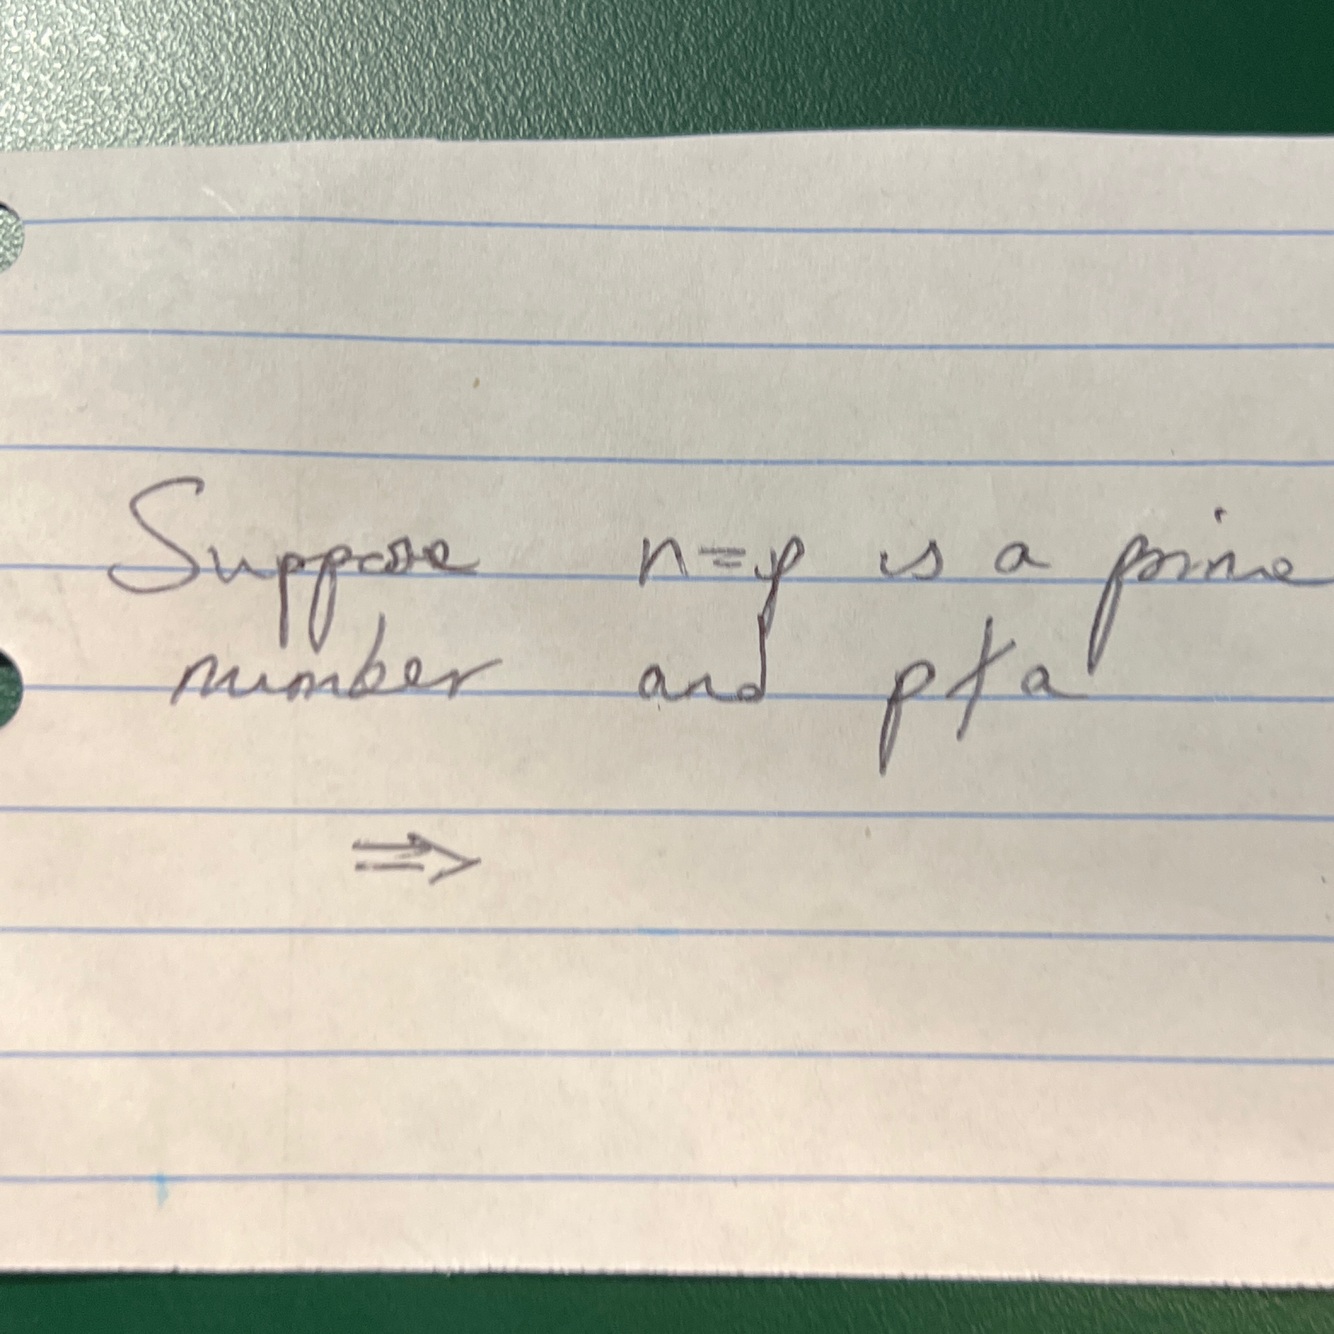 Suppose n=p is a prime
number and p∤a
⇒